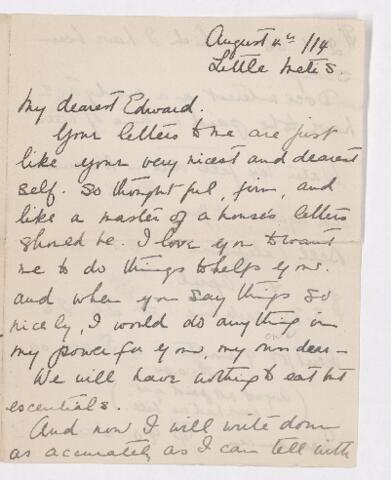 August 4th /14
Little Metis.
My dearest Edward.
Your letters to me are just
like your very nicest and dearest
self. So thoughtful, firm, and
like a master of a house's letters
should be. I love you to want
me to do things to help you.
and when you say things so
nicely, I would do anything in
my power for you, my own dear—
We will have nothing to eat but
escentials.
And now I will write down
as accurately as I can tell with